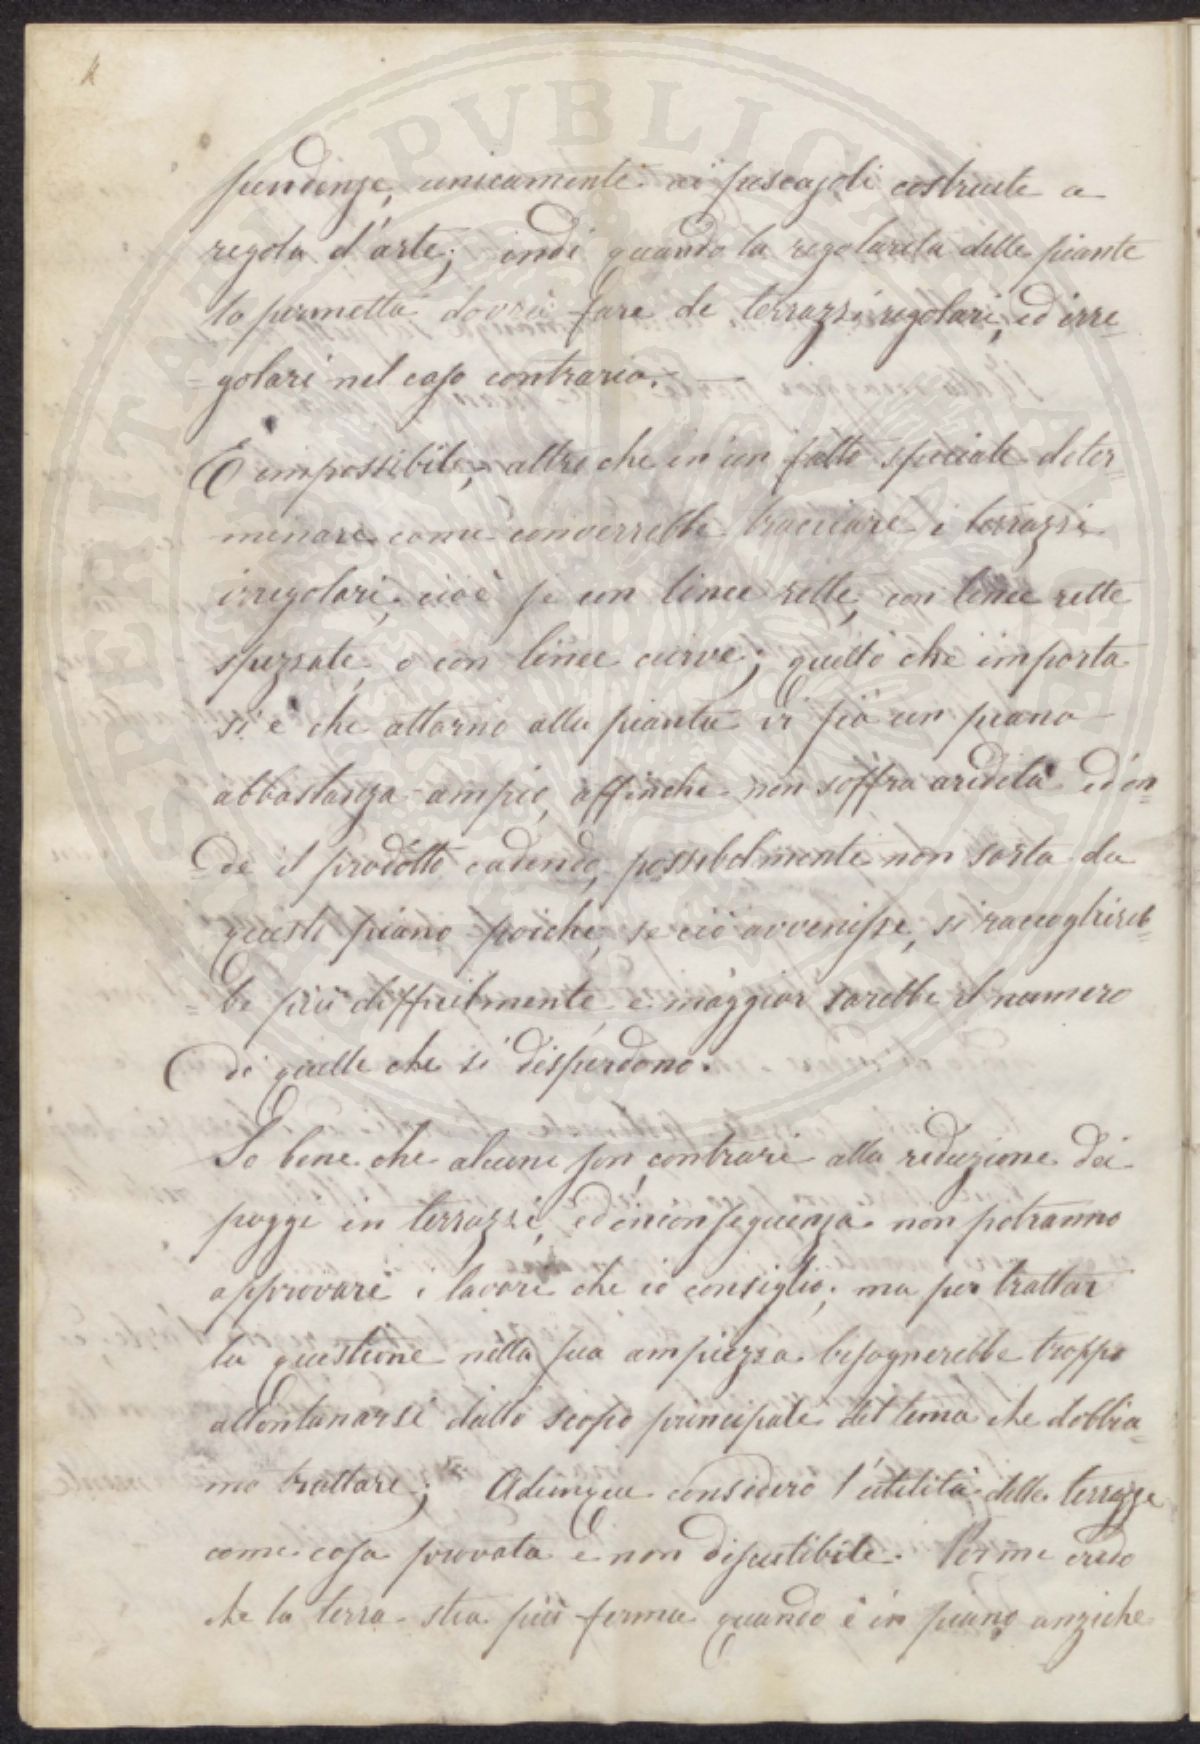 pendenze, unicamente ai pescajoli costruite a
regola d'arte; indi quando la regolarità delle piante
lo permetta dovrà fare de terrazzi regolari, ed irre=
=golari nel caso contrario.
È impossibile, altro che in un fatto speciale deter=
minare come converrebbe tracciare i terrazzi
irregolari, cioè se con linee rette, con linee rette
spezzate, o con linee curve; quello che importa
si è che attorno alla pianta vi sia un piano
abbastanza ampio, affinche non soffra aridità ed on=
=de il prodotto cadendo, possibilmente non sorta da
questo piano poiché, se ciò avvenisse, si raccoglireb=
=be più difficilmente, e maggior sarebbe il numero
di quelle che si disperdono.
So bene che alcuni son contrari alla riduzione dei
poggi in terrazzi, ed in conseguenza non potranno
approvare i lavori che io consiglio; ma per trattar
la questione nella sua ampiezza bisognerebbe troppo
allontanarsi dallo scopo principale del tema che dobbia=
mo trattare; Adunque considero l'utilità delle terrazze
come cosa provata e non discutibile. Per me credo
che la terra stia più ferma quando è in piano anziche